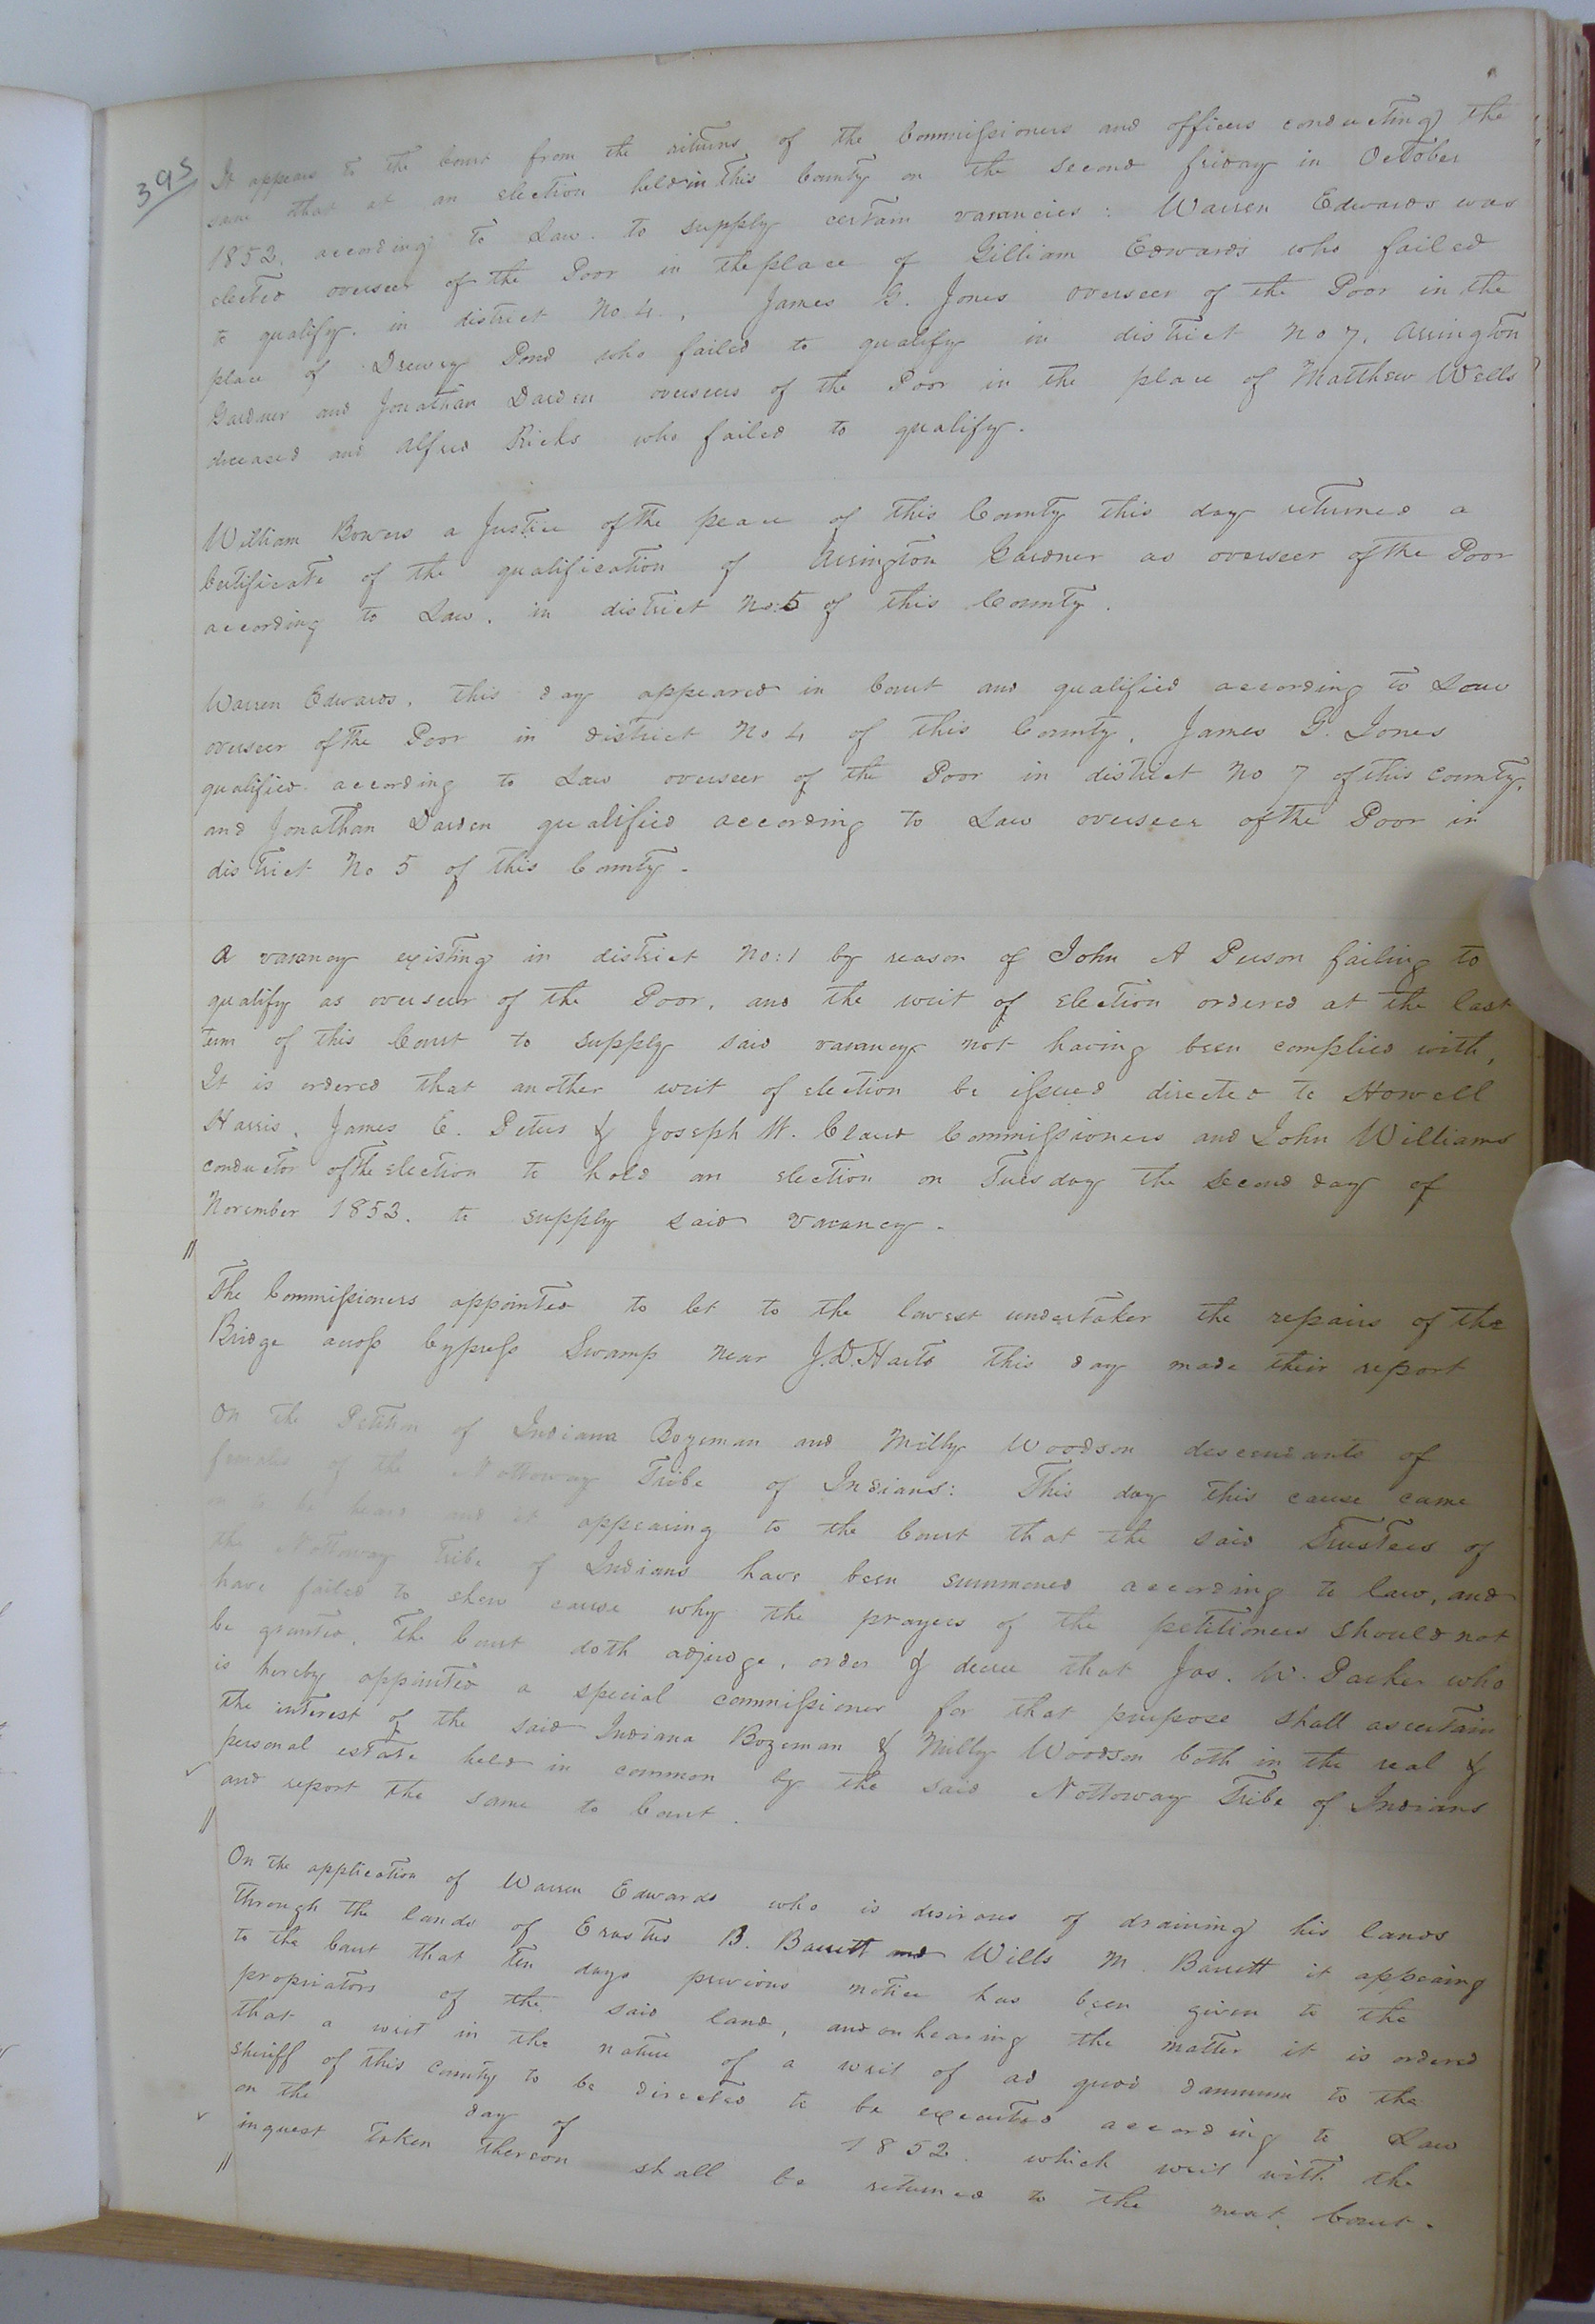 395
It appears to the Court from the returns of the Commissioners and officers conducting the
same that at an election held in this County on the second friday in October
1852. according to Law. to supply certain vacancies: Warren Edwards was
elected overseer of the Poor in the place of Gilliam Edwards who failed
to qualify. in district No 4., James G. Jones overseer of the Poor in the
place of Drewry Pond who failed to qualify in district No 7, Arrington
Gardner and Jonathan Darden overseers of the Poor in the place of Matthew Wells
deceased and Alfred Ricks who failed to qualify.
William Bowers a Justice of the peace of this County this day returned a
Certificate of the qualification of Arrington Gardner as overseer of the Poor
according to Law. in district No: 5 of this County.
Warren Edwards, this day appeared in Court and qualified according to Law
overseer of the Poor in district No 4 of this County. James G. Jones
qualified according to Law overseer of the Poor in district No 7 of this County,
and Jonathan Darden qualified according to Law overseer of the Poor in
district No 5 of this County.
A vacancy existing in district No: 1 by reason of John A Person failing to
qualify as overseer of the Poor, and the writ of election ordered at the last
term of this Court to supply said vacancy not having been complied with,
It is ordered that another writ of election be issued directed to Howell
Harris, James E. Peters & Joseph W. Claud Commissioners and John Williams
conductor of the election to hold an election on Tuesday the Second day of
November 1852. to supply said vacancy.
"
The Commissioners appointed to let to the lowest undertaker the repairs of the
Bridge across Cypress Swamp near J.D. Harts this day made their report
On the Petition of Indiana Bozeman and Milly Woodson descendants of
females of the Nottoway Tribe of Indians: This day this cause came
to be heard and it appearing to the Court that the said Trustees of
the Nottoway Tribe of Indians have been summoned according to law, and
have failed to shew cause why the prayers of the petitioners should not
be granted. The Court doth adjudge, order & decree that Jas. W. Parker who
is hereby appointed a special commissioner for that purpose shall ascertain
the interest of the said Indiana Bozeman & Milly Woodson both in the real &
personal estate held in common by the said Nottoway Tribe of Indians
and report the same to Court.
"
On the application of Warren Edwards who is desirous of draining his lands
through the lands of Erastus B. Barrett and Wills M. Barrett it appearing
to the Court that Ten days previous notice has been given to the
propriators of the said land, and on hearing the matter it is ordered
that a writ in the nature of a writ of ad quod damnum to the
Sheriff of this County to be directed to be executed according to Law
on the day of 1852. which writ with the
inquest taken thereon shall be returned to the next Court.
"